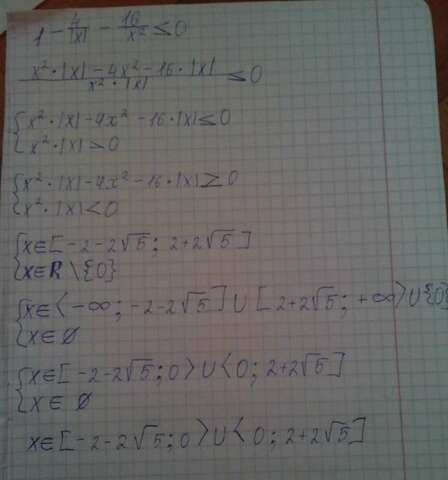 1 - 4/|x| - 16/x² ≤ 0
(x²·|x| - 4x² - 16·|x|)/(x²·|x|) ≤ 0
{x²·|x| - 4x² - 16·|x| ≤ 0
{x²·|x| > 0
{x²·|x| - 4x² - 16·|x| ≥ 0
{x²·|x| < 0
{x∈[-2-2√5; 2+2√5]
{x∈R\{0}
{x∈<-∞; -2-2√5]∪[2+2√5; +∞>∪{0}
{x∈∅
{x∈[-2-2√5; 0>∪<0; 2+2√5]
{x∈∅
x∈[-2-2√5; 0>∪<0; 2+2√5]